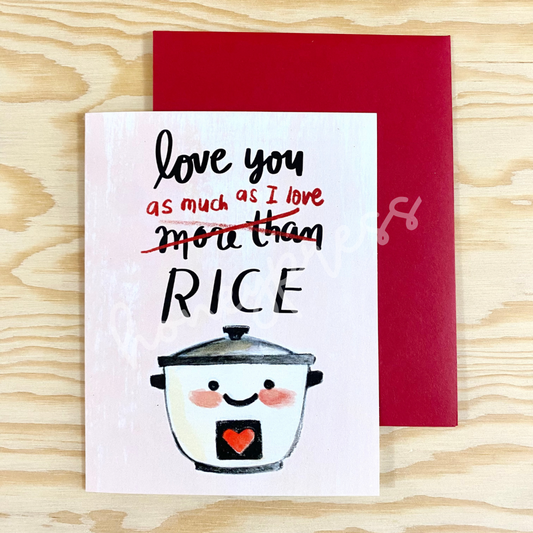 love you
as much as I love
more than
RICE